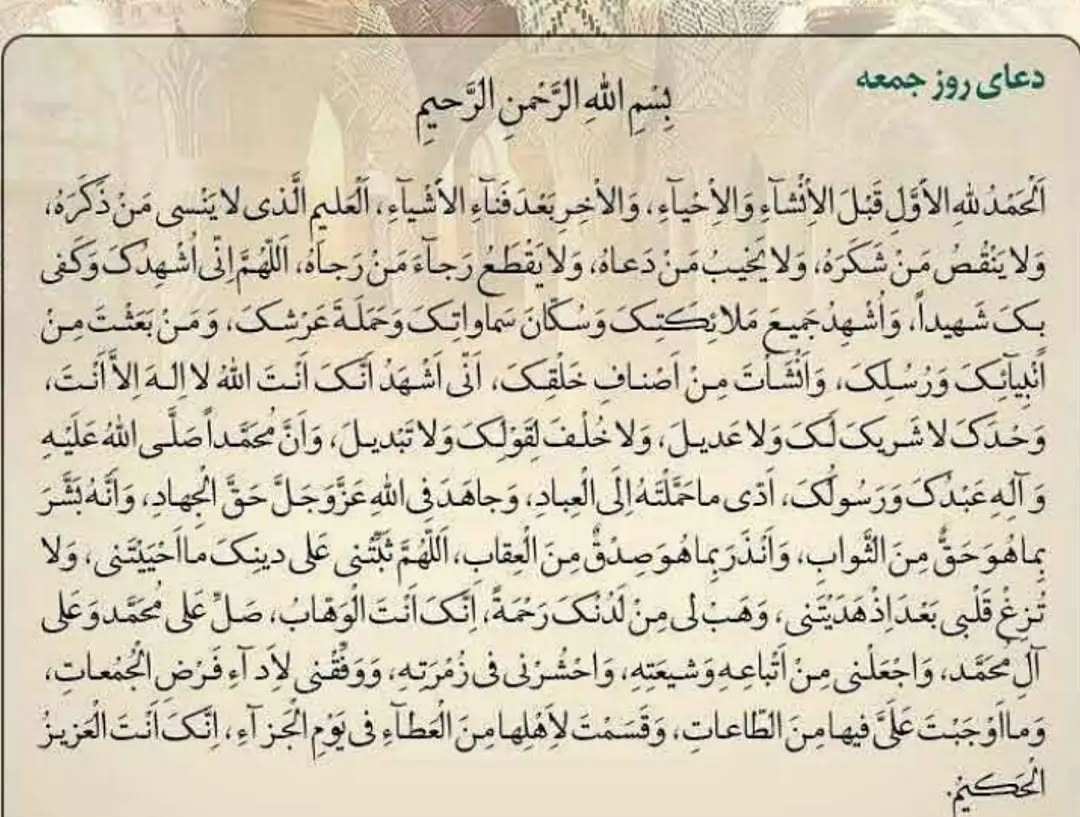 دعای روز جمعه
بِسْمِ اللهِ الرَّحْمنِ الرَّحیمِ
اَلْحَمْدُ لِلهِ الاَْوَّلِ قَبْلَ الاِْنْشآءِ وَالاِْحْیآءِ، وَالاْخِرِ بَعْدَ فَنآءِ الاَْشْیآءِ، اَلْعَلیمِ الَّذی لا یَنْسی مَنْ ذَکَرَهُ،
وَلا یَنْقُصُ مَنْ شَکَرَهُ، وَلا یَخْیبُ مَنْ دَعاهُ، وَلا یَقْطَعُ رَجآءَ مَنْ رَجاهُ، اَللّهُمَّ اِنّی اُشْهِدُکَ وَکَفی
بِکَ شَهیداً، وَاُشْهِدُ جَمیعَ مَلائِکَتِکَ وَسُکّانَ سَماواتِکَ وَحَمَلَةَ عَرْشِکَ، وَمَنْ بَعَثْتَ مِنْ
اَنْبِیآئِکَ وَرُسُلِکَ، وَاَنْشَأْتَ مِنْ اَصْنافِ خَلْقِکَ، اَنّی اَشْهَدُ اَنَّکَ اَنْتَ اللهُ لا اِلـهَ اِلاَّ اَنْتَ،
وَحْدَکَ لا شَریکَ لَکَ وَلا عَدیلَ، وَلا خُلْفَ لِقَوْلِکَ وَلا تَبْدیلَ، وَاَنَّ مُحَمَّداً صَلَّی اللهُ عَلَیْهِ
وَآلِهِ عَبْدُکَ وَرَسُولُکَ، اَدّی ما حَمَّلْتَهُ اِلَی الْعِبادِ، وَجاهَدَ فِی اللهِ عَزَّوَجَلَّ حَقَّ الْجِهادِ، وَاَنَّهُ بَشَّرَ
بِما هُوَ حَقٌّ مِنَ الثَّوابِ، وَاَنْذَرَ بِما هُوَ صِدْقٌ مِنَ الْعِقابِ، اَللّهُمَّ ثَبِّتْنی عَلی دینِکَ ما اَحْیَیْتَنی، وَلا
تُزِغْ قَلْبی بَعْدَ اِذْ هَدَیْتَنی، وَهَبْ لی مِنْ لَدُنْکَ رَحْمَةً، اِنَّکَ اَنْتَ الْوَهّابُ، صَلِّ عَلی مُحَمَّد وَعَلی
آلِ مُحَمَّد، وَاجْعَلْنی مِنْ اَتْباعِهِ وَشیعَتِهِ، وَاحْشُرْنی فی زُمْرَتِهِ، وَوَفِّقْنی لاَِدآءِ فَرْضِ الْجُمُعاتِ،
وَما اَوْجَبْتَ عَلَیَّ فیها مِنَ الطّاعاتِ، وَقَسَمْتَ لاَِهْلِها مِنَ الْعَطآءِ فی یَوْمِ الْجَزآءِ، اِنَّکَ اَنْتَ الْعَزیزُ
الْحَکیمُ.